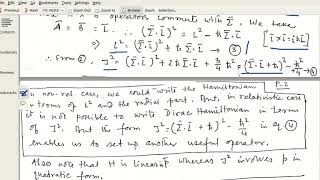 operators commute with Σ̄. We take
Ā = B̄ = L̄ : (Σ̄.L̄)² = L² − ħ Σ̄.L̄ [L̄×L̄ = iħL̄]
⇒ L² = (Σ̄.L̄)² + ħ Σ̄.L̄ → ③
∴ From ②, J² = (Σ̄.L̄)² + 2ħ Σ̄.L̄ + ħ² − ħ²/4 = (Σ̄.L̄ + ħ)² − ħ²/4 → ④
P-2
In non-rel case, we could write the Hamiltonian
in terms of L² and the radial part. But, in relativistic case
it is not possible to write Dirac Hamiltonian in terms
of J². But the form J² = (Σ̄.L̄ + ħ)² − ħ²/4 in eq ④
enables us to set up another useful operator.
Also note that H is linear in p̄ whereas J² involves p in
quadratic form.